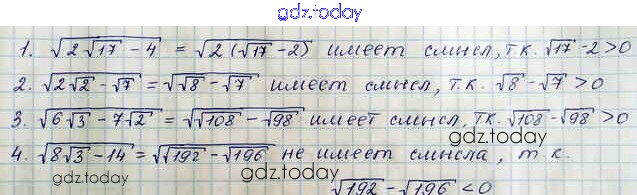 gdz.today
1. √(2√17 - 4) = √(2(√17 - 2)) имеет смысл, т.к. √17 - 2 > 0
2. √(2√2 - √7) = √(√8 - √7) имеет смысл, т.к. √8 - √7 > 0
3. √(6√3 - 7√2) = √(√108 - √98) имеет смысл, т.к. √108 - √98 > 0
gdz.today
4. √(8√3 - 14) = √(√192 - √196) не имеет смысла, т.к.
gdz.today
√192 - √196 < 0